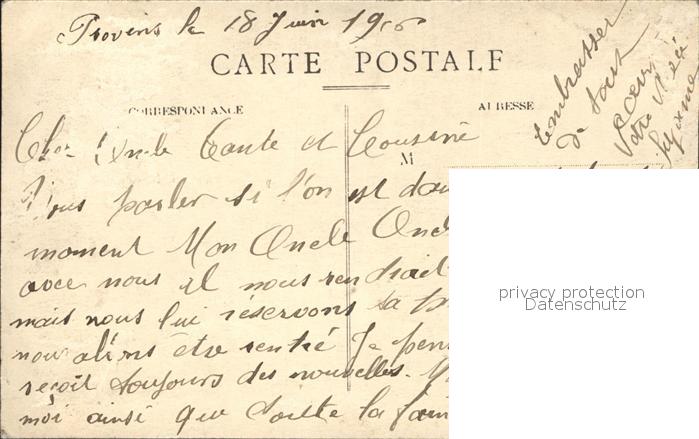 Provins le 18 Juin 1916
CARTE POSTALE
CORRESPONDANCE
ADRESSE
M
Cher Oncle Tante et Cousine
Vous parler si l'on est dan
moment Mon Oncle
avec nous il nous rendrait
mais nous lui réservons sa
nous alons être rentré Je pen
reçoit toujours des nouvelles.
moi ainsi que toutte la fam
Embrasser
de tous
Votre
privacy protection
Datenschutz